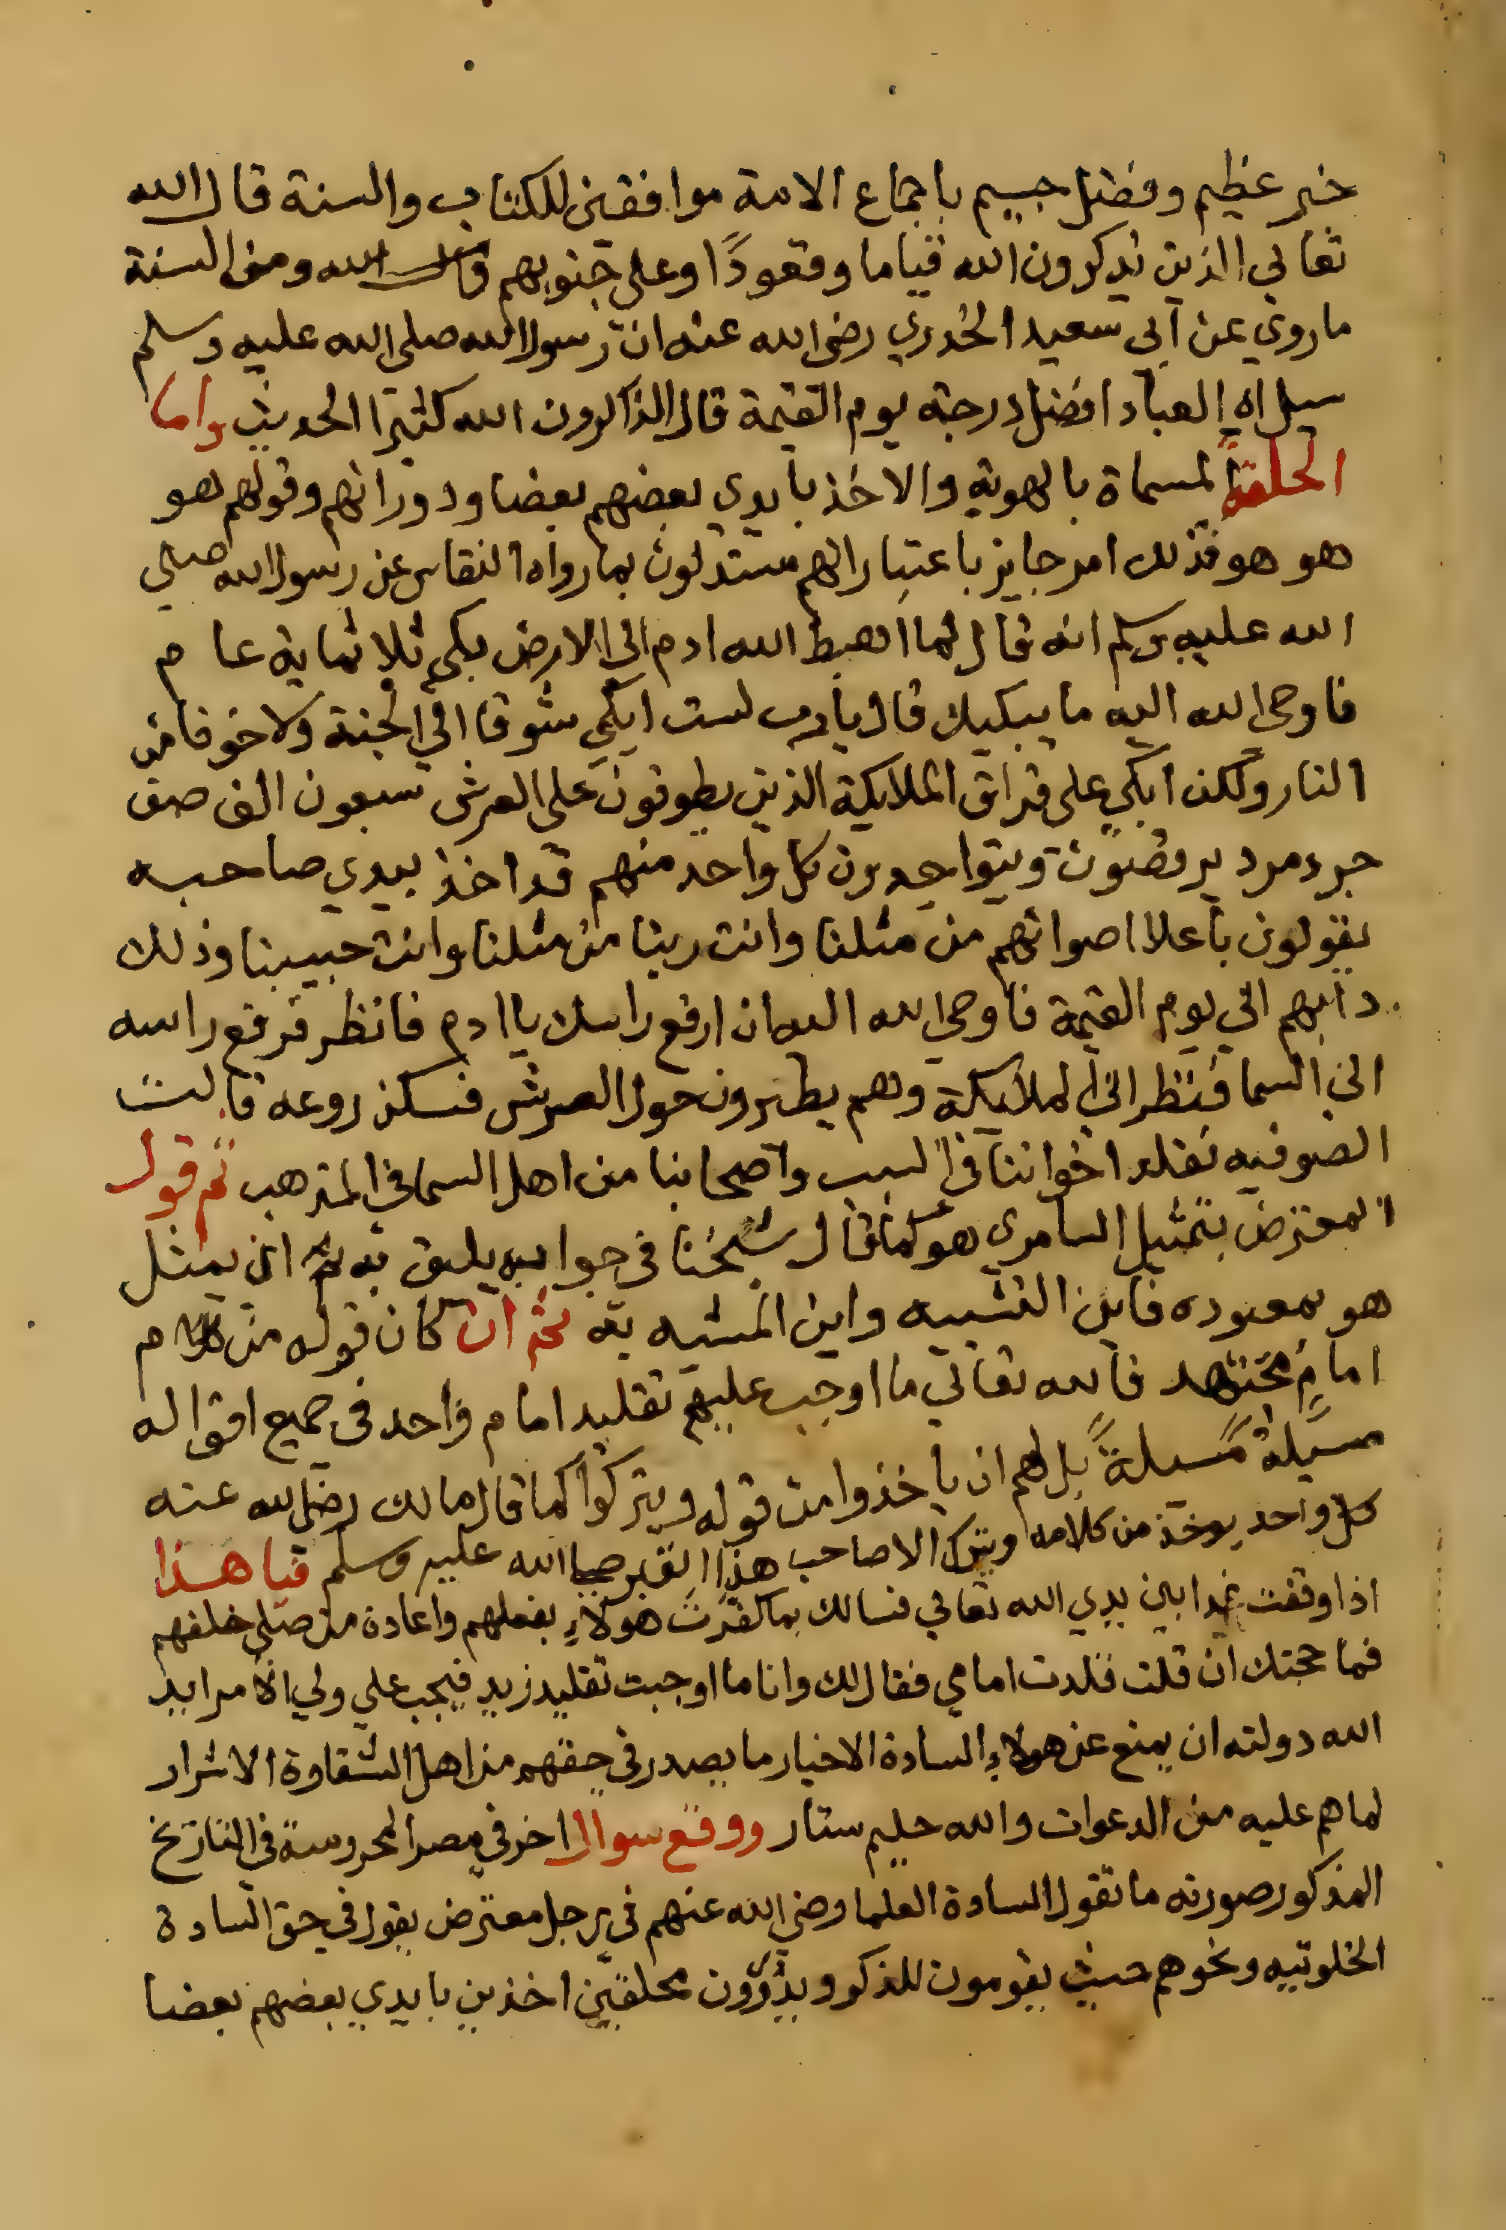 خير عظيم وفضل جسيم باجماع الامة موافقين للكتاب والسنة قال الله
تعالى الذين يذكرون الله قياما وقعودًا وعلى جنوبهم قال الله ومن السنة
ما روي عن ابي سعيد الخدري رضى الله عنه ان رسول الله صلى الله عليه وسلم
سيل اي العباد افضل درجة يوم القيمة قال الذاكرون الله كثيرا الحديث واما
الحلقة المسماة بالهوية والاخذ بايدي بعضهم بعضا ودورانهم وقولهم هو
هو هو فذلك امر جايز باعتبار انهم مستدلون بما رواه النقاس عن رسول الله صلى
الله عليه وسلم انه قال لما اهبط الله ادم الى الارض بكى ثلاثماية عام
فاوحى الله اليه ما يبكيك قال يا رب لست ابكي شوقا الى الجنة ولا خوفا من
النار ولكن ابكي على فراق الملايكة الذين يطوفون على العرش سبعون الف صف
جرد مرد يرقصون ويتواجدون كل واحد منهم قد اخذ بيدي صاحبه
يقولون باعلا اصواتهم من مثلنا وانت ربنا من مثلنا وانت حبيبنا وذلك
دابهم الى يوم القيمة فاوحى الله اليه ان ارفع راسك يا ادم فانظر فرفع راسه
الى السما فنظر الى الملايكة وهم يطيرون حول العرش فسكن روعه قالت
الصوفيه نقلد اخواننا في السبب واصحابنا من اهل السما في المذهب ثم قول
المعترض بتمثيل السامري هو كما قال شيخنا في جوابه يليق به ان يمثل
هو بمعبوده فاين التشبيه واين المشبه به ثم ان كان قوله من كلام
امام مجتهد فالله تعالى ما اوجب عليهم تقليد امام واحد في جميع اقواله
مسيلة مسيلةً بل لهم ان ياخذوا من قوله ويتركوا كما قال مالك رضى الله عنه
كل واحد يوخذ من كلامه ويترك الا صاحب هذا القبر صلى الله عليه وسلم فيا هذا
اذا وقفت غدا بين يدي الله تعالى فسالك بما كفرت هولاء بفعلهم واعادة من صلى خلفهم
فما حجتك ان قلت قلدت امامي فقال لك وانا ما اوجبت تقليد زيد فيجب على ولي الامر ايد
الله دولته ان يمنع عن هولاء السادة الاخيار ما يصدر في حقهم من اهل الشقاوة الاشرار
لما هم عليه من الدعوات والله حليم ستار ووقع سوال اخر في مصر المحروسة في التاريخ
المذكور صورته ما تقول السادة العلما رضي الله عنهم في رجل معترض يقول في حق السادة
الخلوتيه ونحوهم حيث يقومون للذكر ويدورون محلقين اخذين بايدي بعضهم بعضا